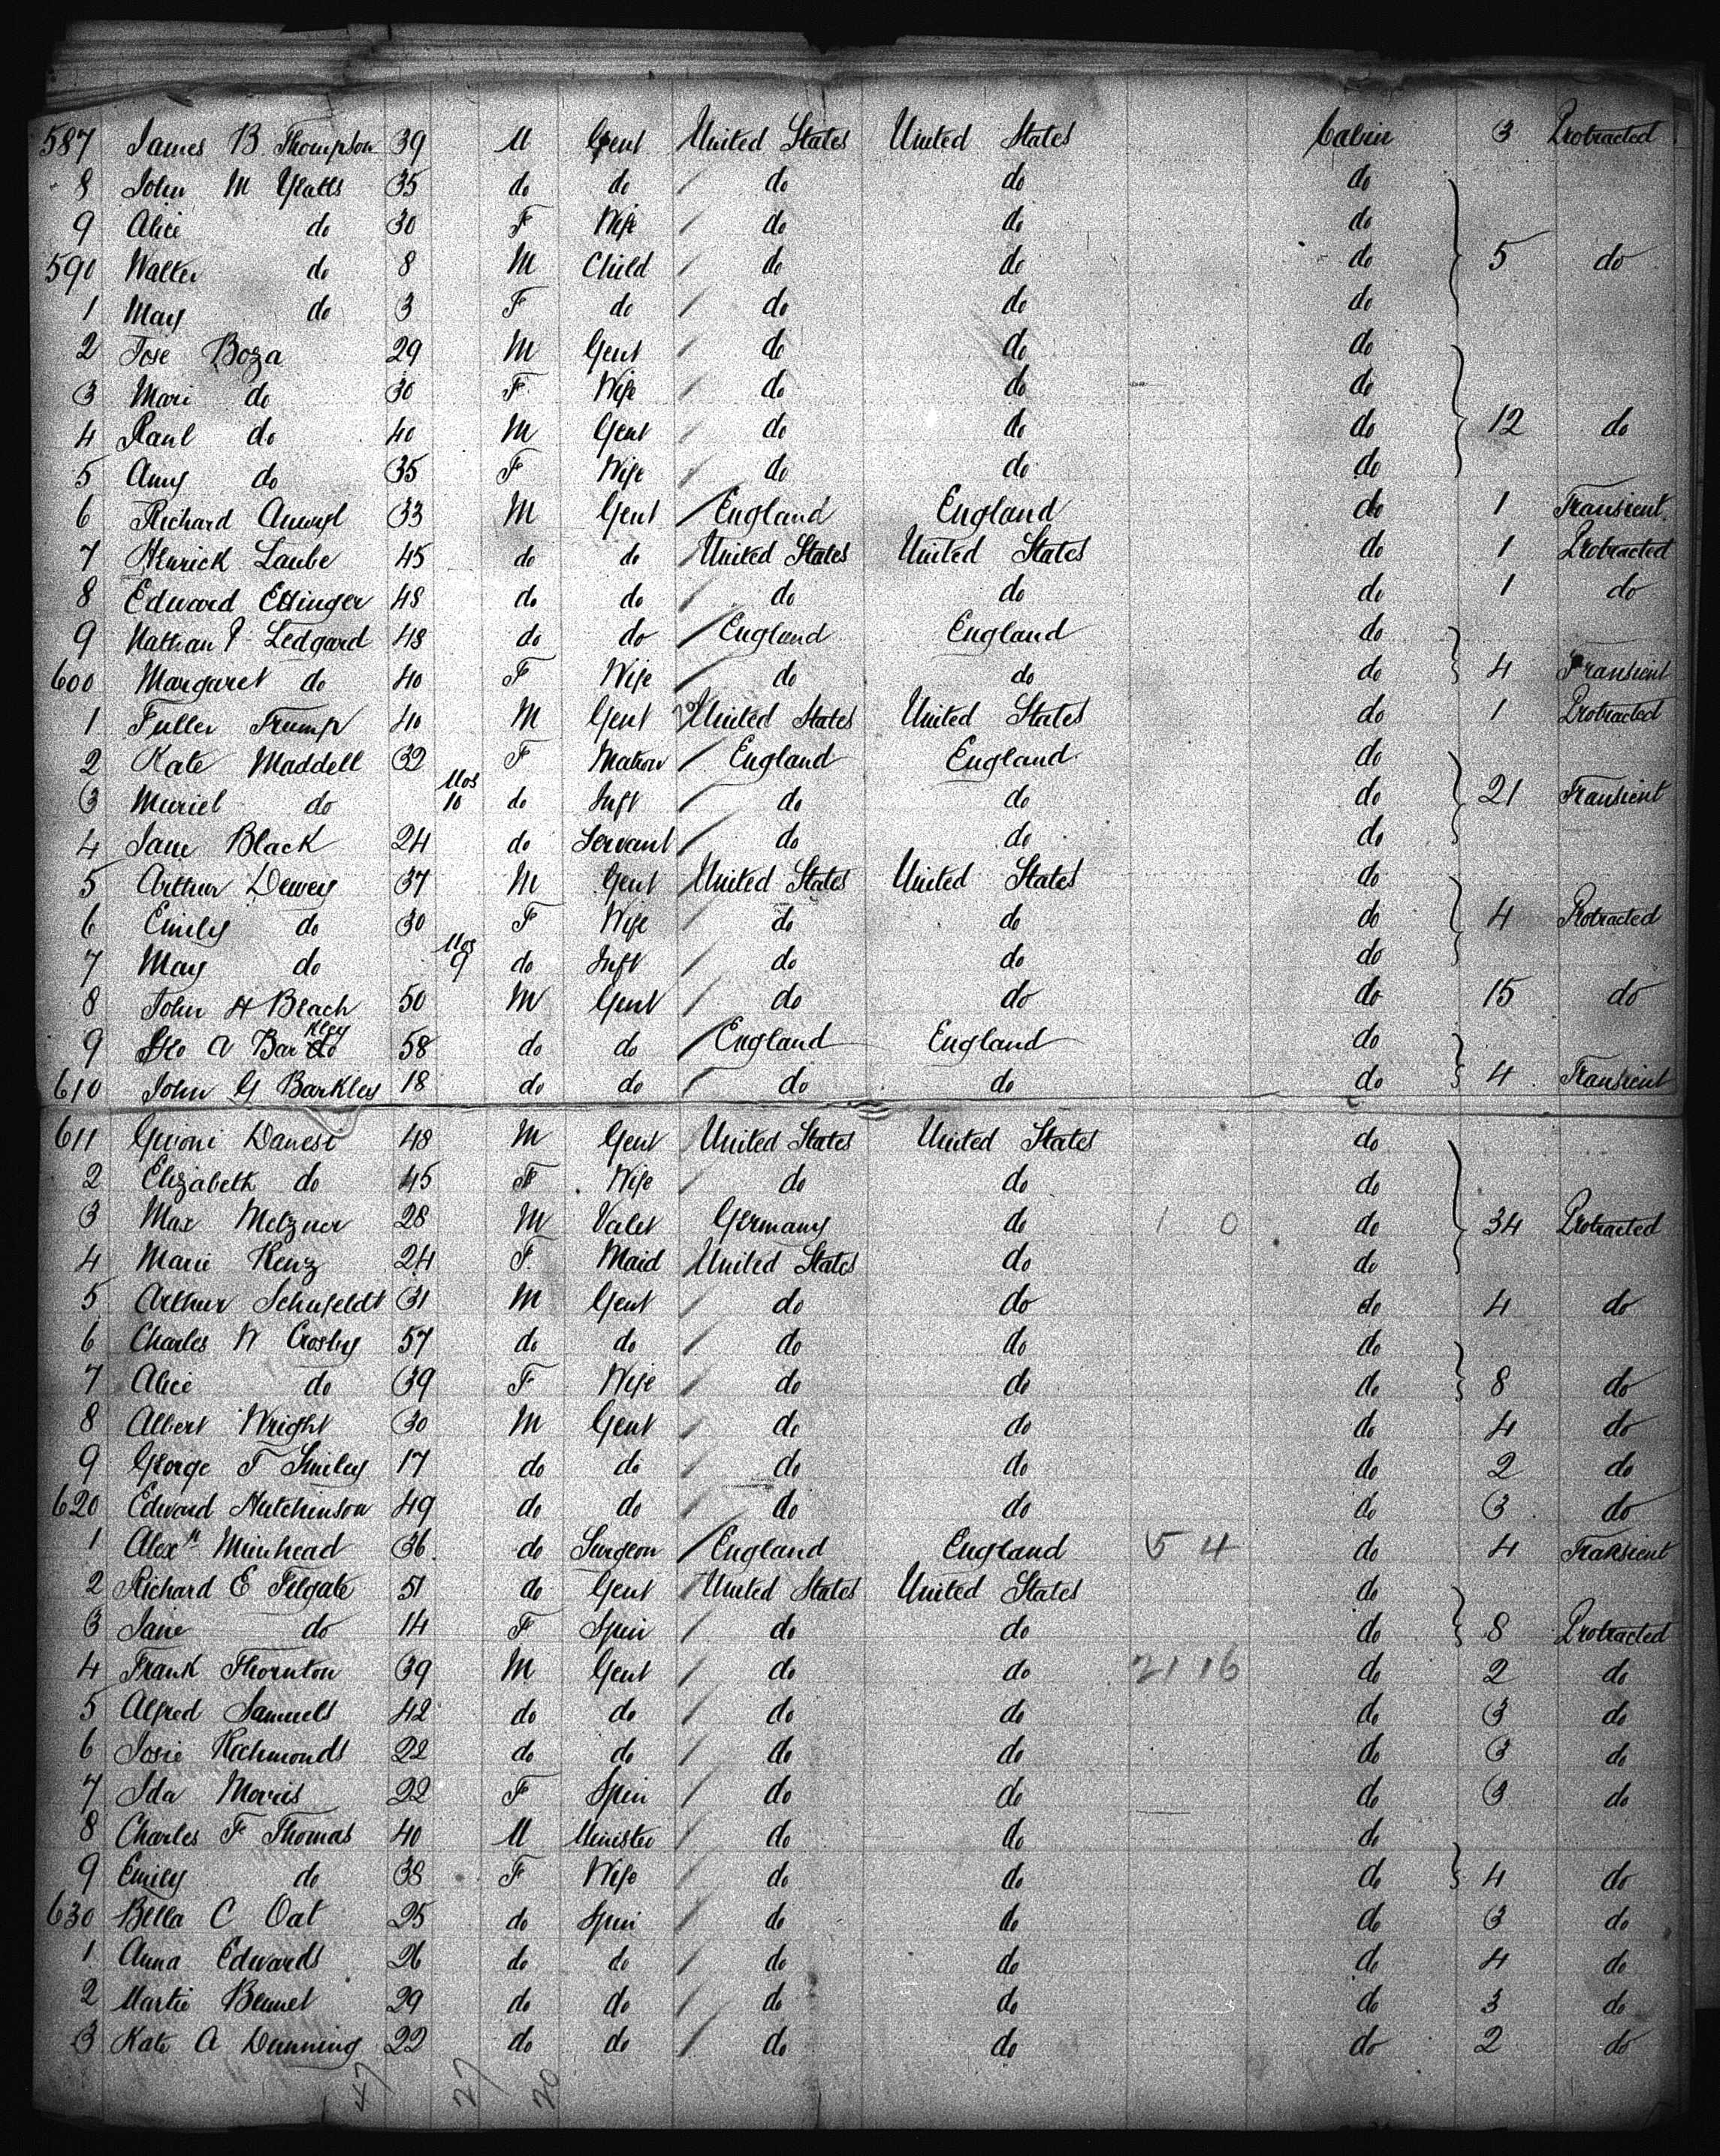 587 James B Thompson 39 M Gent United States United States Cabin 3 Protracted
8 John M Yeatts 35 do do do do do
9 Alice do 30 F Wife do do do
590 Walter do 8 M Child do do do 5 do
1 May do 3 F do do do do
2 Jose Boza 29 M Gent do do do
3 Mari do 30 F Wife do do do
4 Paul do 40 M Gent do do do 12 do
5 Amy do 35 F Wife do do do
6 Richard Anwyl 33 M Gent England England do 1 Transient
7 Henrick Laube 45 do do United States United States do 1 Protracted
8 Edward Ettinger 48 do do do do do 1 do
9 Nathan P Ledgard 48 do do England England do
600 Margaret do 40 F Wife do do do 4 Transient
1 Fuller Trump 40 M Gent United States United States do 1 Protracted
2 Kate Maddell 32 F Matron England England do
3 Muriel do Mos 10 do Inft do do do 21 Transient
4 Jane Black 24 do Servant do do do
5 Arthur Dewey 37 M Gent United States United States do
6 Emily do 30 F Wife do do do 4 Protracted
7 May do Mos 9 do Inft do do do
8 John H Beach 50 M Gent do do do 15 do
9 Geo A Barkley 58 do do England England do
610 John G Barkley 18 do do do do do 4 Transient
611 Danesi 48 M Gent United States United States do
2 Elizabeth do 45 F Wife do do do
3 Max Metzner 28 M Valet Germany do 1 0 do 34 Protracted
4 Marie Kenz 24 F Maid United States do do
5 Arthur Schufeldt 31 M Gent do do do 4 do
6 Charles W Crosby 57 do do do do do
7 Alice do 39 F Wife do do do 8 do
8 Albert Wright 30 M Gent do do do 4 do
9 George T Smiley 17 do do do do do 2 do
620 Edward Hutchinson 49 do do do do do 3 do
1 Alexr Muirhead 36 do Surgeon England England 5 4 do 4 Transient
2 Richard E Felgate 51 do Gent United States United States do
3 Jane do 14 F Spin do do do 8 Protracted
4 Frank Thornton 39 M Gent do do 21 16 do 2 do
5 Alfred Samuels 42 do do do do do 3 do
6 Josie Richmonds 22 do do do do do 3 do
7 Ida Morris 22 F Spin do do do 3 do
8 Charles F Thomas 40 M Minister do do do
9 Emily do 38 F Wife do do do 4 do
630 Bella C Oat 25 do Spin do do do 3 do
1 Anna Edwards 26 do do do do do 4 do
2 Martie Bennet 29 do do do do do 3 do
3 Kate A Dunning 22 do do do do do 2 do
47 27 20